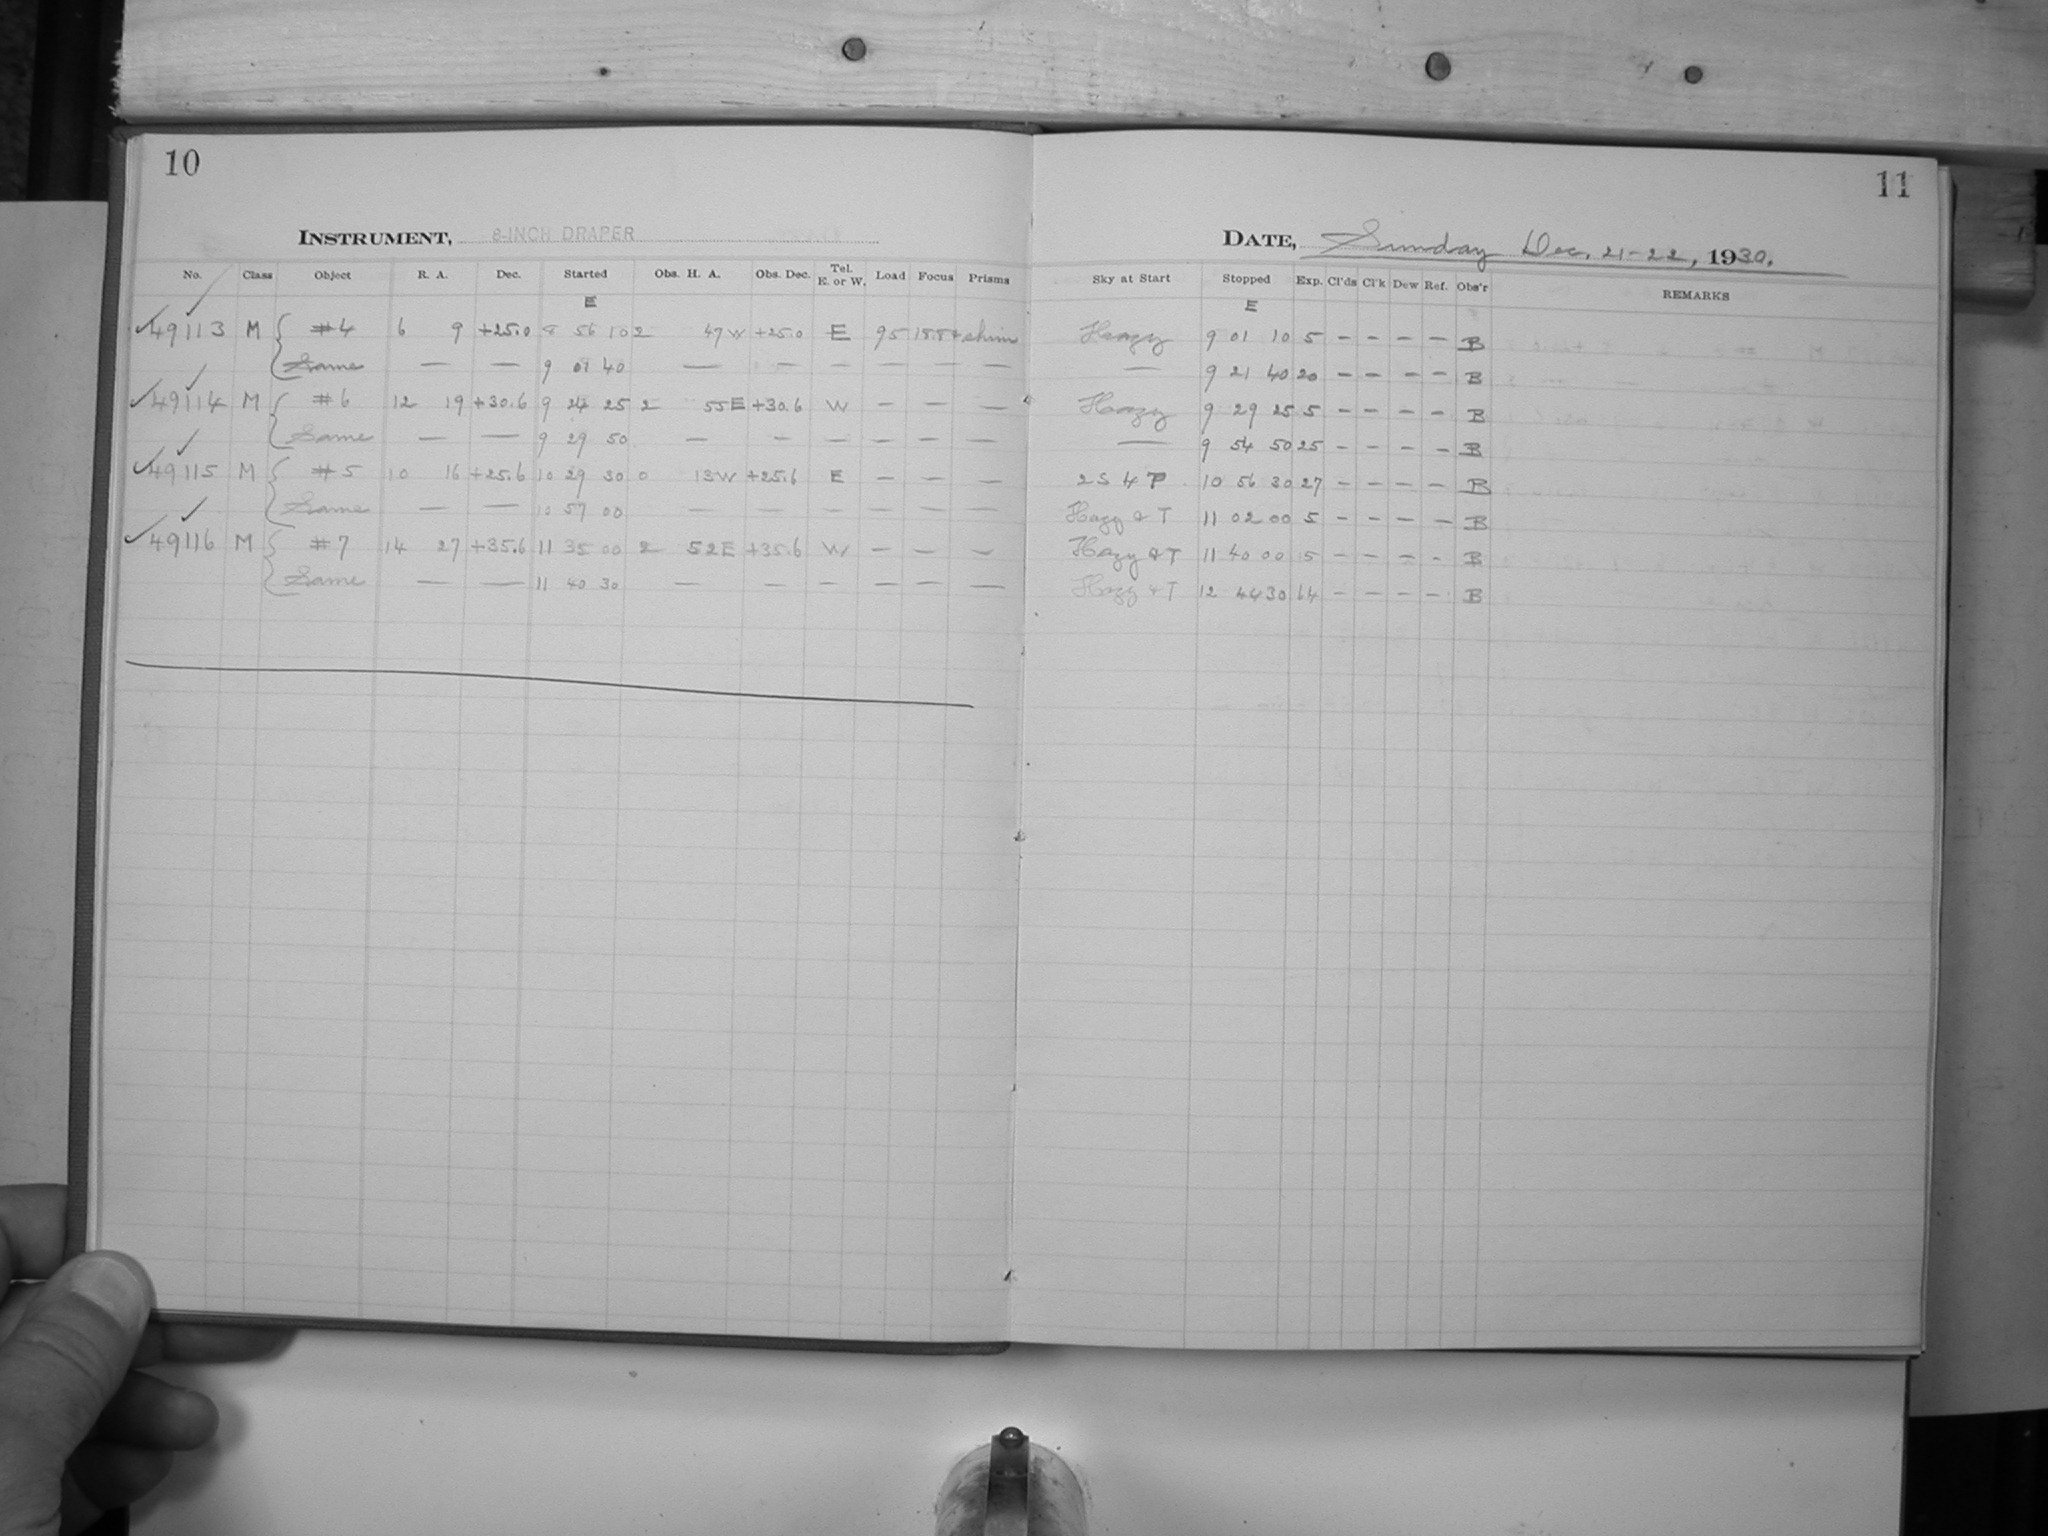 10
INSTRUMENT, 8-INCH DRAPER
No. Class Object R. A. Dec. Started Obs. H. A. Obs. Dec. Tel. E. or W. Load Focus Prisms
E
49113 M #4 6 9 +25.0 8 56 10 2 47 W +25.0 E 95 shim
Same — — 9 01 40 — — — — — —
49114 M #6 12 19 +30.6 9 24 25 2 55 E +30.6 W — — —
Same — — 9 29 50 — — — — — —
49115 M #5 10 16 +25.6 10 29 30 0 13 W +25.6 E — — —
Same — — 10 57 00 — — — — — —
49116 M #7 14 27 +35.6 11 35 00 2 52 E +35.6 W — — —
Same — — 11 40 30 — — — — — —
11
DATE, Sunday Dec. 21-22, 1930.
Sky at Start Stopped Exp. Cl'ds Cl'k Dew Ref. Obs'r REMARKS
E
Hazy 9 01 10 5 — — — — B
— 9 21 40 20 — — — — B
Hazy 9 29 25 5 — — — — B
— 9 54 50 25 — — — — B
2 S 4 P 10 56 30 27 — — — — B
Hazy & T 11 02 00 5 — — — — B
Hazy & T 11 40 00 5 — — — — B
Hazy & T 12 44 30 64 — — — — B